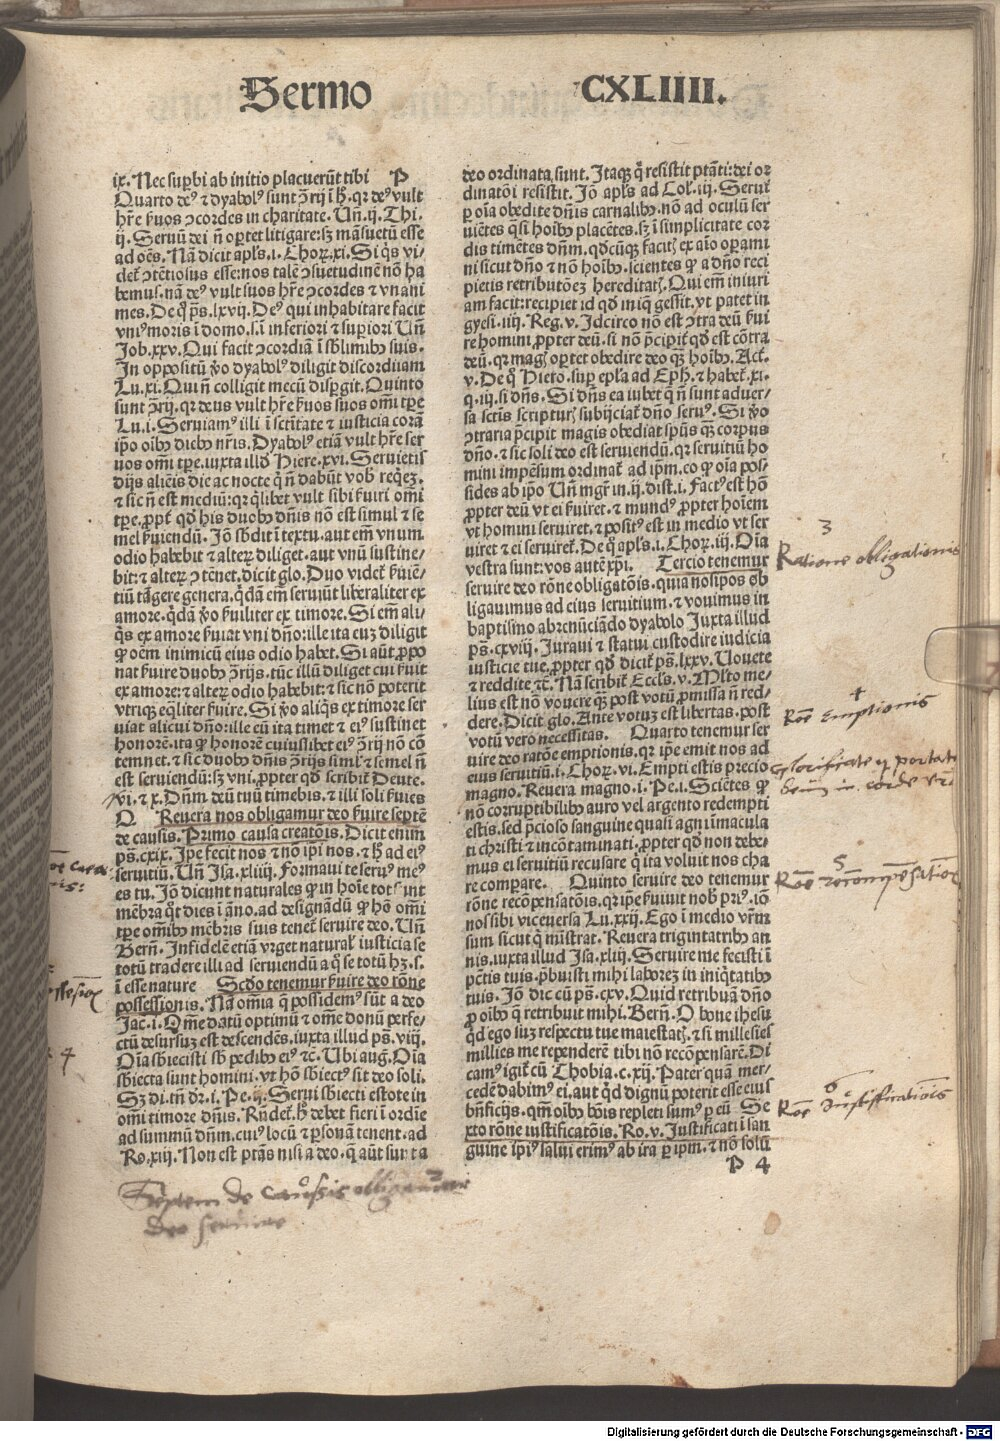 Sermo CXLIIII.
ix. Nec suꝑbi ab initio placuerūt tibi P
Quarto deꝰ ⁊ dyabolꝰ sunt ꝯrij ī h̄. qꝛ deꝰ vult
hr̄e ẜuos ꝯcordes in charitate. Uñ. ij. Thi.
ij. Seruū dei ñ oꝑtet litigare: sꝫ māsuetū esse
ad oēs. Nā dicit apl̄s. i. Choꝝ. xi. Si q̇s vi/
det̉ ꝯtētiosus esse: nos talē ꝯsuetudinē nō ha
bemus. nā deꝰ vult suos hr̄e ꝯcordes ⁊ vnani
mes. De q̊ ps̄. lxvij. Deꝰ qui inhabitare facit
vniꝰ moris ī domo. s. ī inferiori ⁊ suꝑiori Uñ
Job. xxv. Qui facit ꝯcordiā ī sb̄limibꝰ suis.
In oppositū v̊o dyabolꝰ diligit discordiam
Lu. xi. Qui ñ colligit mecū disꝑgit. Quinto
sunt ꝯrij. qꝛ deus vult hr̄e ẜuos suos om̄i tꝑe
Lu. i. Seruiamꝰ illi ī sctītate ⁊ iusticia corā
ip̄o oībꝰ diebꝰ nr̄is. Dyabolꝰ etiā vult hr̄e ser
uos om̄i tꝑe. iuxta illd̓ Hiere. xvi. Seruietis
dijs alienis die ac nocte q̇ ñ dabūt vob̓ req̇eꝫ.
⁊ sic ñ est mediū: qꝛ q̇libet vult sibi ẜuiri om̄i
tꝑe. ꝓpt̓ qd̓ his duobꝰ dn̄is nō est simul ⁊ se
mel ẜuiendū. Jō sb̄dit ī textu. aut em̄ vnum
odio habebit ⁊ alterꝝ diliget. aut vnū sustine/
bit: ⁊ alterꝝ ꝯtēnet. dicit glo. Duo vident̉ ẜuiē/
tiū tāgere genera. q̇dā em̄ seruiūt liberaliter ex
amore. q̇dā v̊o ẜuiliter ex timore. Si em̄ ali/
q̇s ex amore ẜuiat vni dn̄o: ille ita euꝫ diligit
ꝙ oēm inimicū eius odio habet. Si aūt ꝓpo
nat ẜuire duobꝰ ꝯrijs. tūc illū diliget cui ẜuit
ex amore: ⁊ alterꝝ odio habebit: ⁊ sic nō poterit
vtriqꝫ eq̄liter ẜuire. Si v̊o aliq̇s ex timore ser
uiat alicui dn̄o: ille eū ita timet ⁊ eiꝰ sustinet
honorē. ita ꝙ honorē cuiuslibet eiꝰ ꝯrij nō cō
temnet. ⁊ sic duobꝰ dn̄is ꝯrijs simul ⁊ semel ñ
est seruiendū: sꝫ vni. ꝓpter qd̓ scribit̉ Deute.
vi. ⁊ x. Dn̄m deū tuū timebis. ⁊ illi soli ẜuies
Q Reuera nos obligamur deo ẜuire septē
de causis. Primo causa creatōis. Dicit enim
ps̄. cxix. Ip̄e fecit nos ⁊ nō ip̄i nos. ⁊ h̄ ad eiꝰ
seruitiū. Uñ Isa. xliiij. Formaui te seruꝰ meꝰ
es tu. Jō dicunt naturales ꝙ in hoīe tot sunt
mēbra q̊t dies ī āno. ad designādū ꝙ hō om̄i
tꝑe om̄ibꝰ mēbris suis tenet̉ seruire deo. Uñ
Bern̄. Infidelē etiā vrget natural̓ iusticia se
totū tradere illi ad seruiendū a q̊ se totū hꝫ. s.
ī esse nature Scd̓o tenemur ẜuire deo rōne
possessionis. Nā om̄ia q̄ possidemꝰ sūt a deo
Jac. i. Om̄e datū optimū ⁊ om̄e donū perfe/
ctū desursuꝫ est descendēs. iuxta illud ps̄. viij.
Oīa sb̄iecisti sb̓ pedibꝰ eiꝰ ⁊c. Ubi aug. Oīa
sb̄iecta sunt homini. vt hō sb̄iectꝰ sit deo soli.
Sꝫ dī. tn̄ dr̄. i. Pe. ij. Serui sb̄iecti estote in
om̄i timore dn̄is. Rn̄det̉. h̄ debet fieri ī ordīe
ad summū dn̄m. cuiꝰ locū ⁊ ꝑsonā tenent. ad
Ro. xiij. Non est ptās nisi a deo. q̄ aūt sunt a
deo ordinata sunt. Itaqꝫ q̇ resistit ptāti: dei or
dinatōi resistit. Jō apl̄s ad Col̓. iij. Serui
ꝑ oīa obedite dn̄is carnalibꝰ. nō ad oculū ser
uiētes q̄si hoībꝰ placētes. sꝫ ī simplicitate cor
dis timētes dn̄m. qd̓cūqꝫ facit̉ ex aīo oꝑami
ni sicut dn̄o ⁊ nō hoībꝰ. scientes ꝙ a dn̄o reci
pietis retributōeꝫ hereditat̉. Qui em̄ iniuri
am facit: recipiet id qd̓ in iq̄ gessit. vt patet in
gyesi. iiij. Reg. v. Idcirco nō est ꝯtra deū ẜui
re homini ꝓpter deū. si nō p̄cipit̉ qd̓ est cōtra
deū. qꝛ magꝭ oꝑtet obedire deo qꝫ hoībꝰ. Act̉.
v. De q̊ Hiero. suꝑ epl̄a ad Eph̓. ⁊ habet̉. xi.
q. iij. si dn̄s. Si dn̄s ea iubet q̄ ñ sunt aduer/
sa sctīs scripturꝭ subijciat̉ dn̄o seruꝰ. Si v̊o
ꝯtraria p̄cipit magis obediat spūs qꝫ corpus
dn̄o. ⁊ sic soli deo est seruiendū. qꝛ seruitiū ho
mini impēsum ordinat̉ ad ip̄m. eo ꝙ oīa pos/
sides ab ip̄o Uñ mgr̄ in. ij. dist. i. Factꝰ est hō
ꝓpter deū vt ei ẜuiret. ⁊ mundꝰ ꝓpter hoīem
vt homini seruiret. ⁊ positꝰ est in medio vt ser
uiret ⁊ ei seruiret̉. De q̊ apl̄s. i. Choꝝ. iij. Oīa
vestra sunt: vos autē xp̄i. Tercio tenemur
seruire deo rōne obligatōis. quia nosipos ob
ligauimus ad eius seruitium. ⁊ vouimus in
baptismo abrenūciādo dyabolo Juxta illud
ps̄. cxviij. Juraui ⁊ statui custodire iudicia
iusticie tue. ꝓpter qd̓ dicit̉ ps̄. lxxv. Uouete
⁊ reddite ⁊c. Nā scribit̉ Eccl̄s. v. Ml̓to me/
lius est nō vouere qꝫ post votū ꝓmissa ñ red/
dere. Dicit glo. Ante votuꝫ est libertas. post
votū vero necessitas. Quarto tenemur ser
uire deo ratōe emptionis. qꝛ ip̄e emit nos ad
eius seruitiū. i. Choꝝ. vi. Empti estis precio
magno. Reuera magno. i. Pe. i. Sciētes ꝙ
nō corruptibilibꝰ auro vel argento redempti
estis. sed p̄cioso sanguine quasi agni īmacula
ti christi ⁊ incōtaminati. ꝓpter qd̓ non debe/
mus ei seruitiū recusare q̇ ita voluit nos cha
re comparare. Quinto seruire deo tenemur
rōne recōpensatōis. qꝛ ip̄e ẜuiuit nob̓ priꝰ. iō
nos sibi viceuersa Lu. xxij. Ego ī medio vr̄m
sum sicut q̇ mīstrat. Reuera trigintatribꝰ an
nis. iuxta illud Isa. xliij. Seruire me fecisti ī
pctīs tuis. p̄buisti mihi laboreꝫ in iniq̇tatibꝰ
tuis. Jō dic cū ps̄. cxv. Quid retribuā dn̄o
ꝓ oībꝰ q̄ retribuit mihi. Bern̄. O bone ihesu
qd̓ ego suꝫ respectu tue maiestatꝭ. ⁊ si millesies
millies me rependerē tibi nō recōpensarē. Di
camꝰ igit̉ cū Thobia. c. xij. Pater quam mer/
cedē dabimꝰ ei. aut qd̓ dignū poterit esse eius
bn̄ficijs. qm̄ oībꝰ bōis repleti sumꝰ ꝑ eū Se
xto rōne iustificatōis. Ro. v. Justificati ī san
guine ip̄iꝰ salui erimꝰ ab ira ꝑ ip̄m. ⁊ nō solū
P 4
3
Ratione obligationis
4
Rōe emptionis
glorificate et portate
deum in corde vrō
5
Rōe recompēsationis
6
Rōe Justificatiōis
Septem de causis obligamur
deo seruire